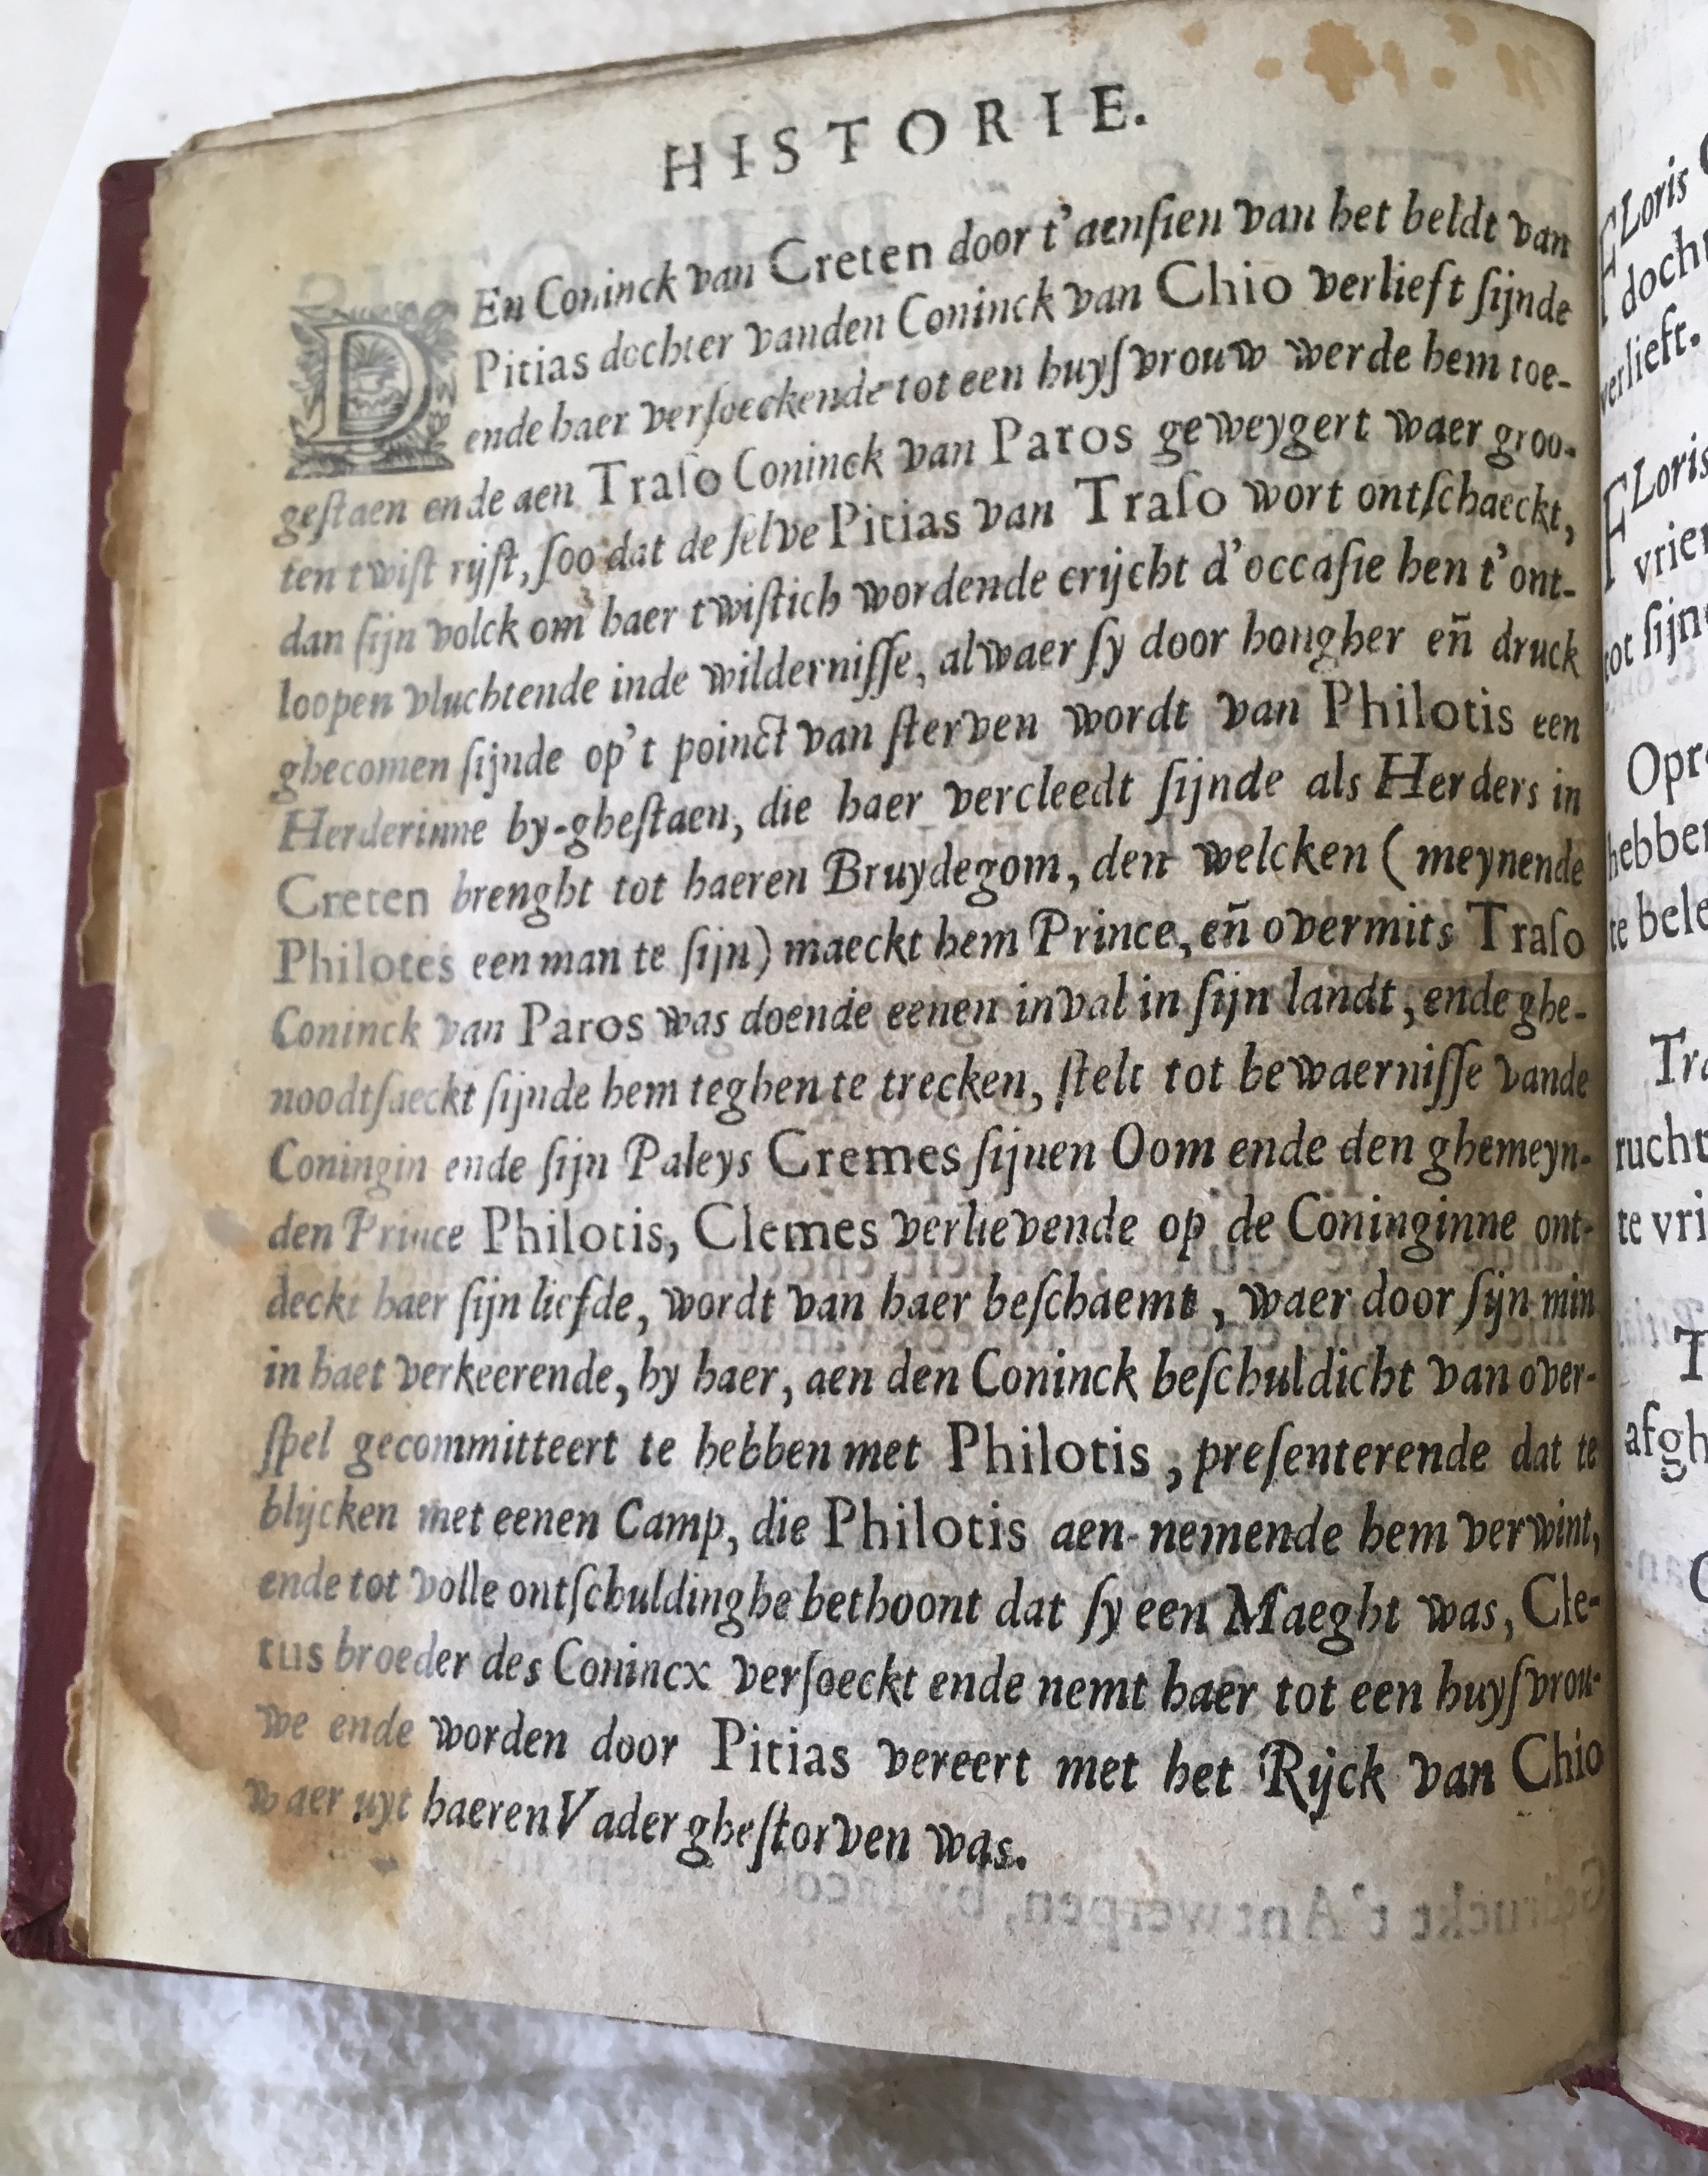 HISTORIE.
DEn Coninck van Creten door t'aenſien van het beldt van
Pitias dochter vanden Coninck van Chio verlieft ſijnde
ende haer verſoeckende tot een huyſvrouw werde hem toe-
geſtaen ende aen Traſo Coninck van Paros geweygert waer groo-
ten twiſt rijſt, ſoo dat de ſelve Pitias van Traſo wort ontſchaeckt,
dan ſijn volck om haer twiſtich wordende crijcht d'occaſie hen t'ont-
loopen vluchtende inde wilderniſſe, alwaer ſy door hongher eñ druck
ghecomen ſijnde op't poinct van ſterven wordt van Philotis een
Herderinne by-gheſtaen, die haer vercleedt ſijnde als Herders in
Creten brenght tot haeren Bruydegom, den welcken ( meynende
Philotes een man te ſijn) maeckt hem Prince, eñ overmits Traſo
Coninck van Paros was doende eenen inval in ſijn landt, ende ghe-
noodtſaeckt ſijnde hem teghen te trecken, ſtelt tot bewaerniſſe vande
Coningin ende ſijn Paleys Cremes ſijnen Oom ende den ghemeyn-
den Prince Philotis, Clemes verlievende op de Coninginne ont-
deckt haer ſijn liefde, wordt van haer beſchaemt, waer door ſijn min
in haet verkeerende, hy haer, aen den Coninck beſchuldicht van over-
ſpel gecommitteert te hebben met Philotis, preſenterende dat te
blijcken met eenen Camp, die Philotis aen-nemende hem verwint,
ende tot volle ontſchuldinghe bethoont dat ſy een Maeght was, Cle-
tus broeder des Conincx verſoeckt ende nemt haer tot een huyſvrou-
we ende worden door Pitias vereert met het Rijck van Chio
waer uyt haeren Vader gheſtorven was.
FLoris
docht
verlieft.
FLoris
vrien
tot ſijn
Opr
hebben
te bele
Tra
rucht
te vri
T
afgh